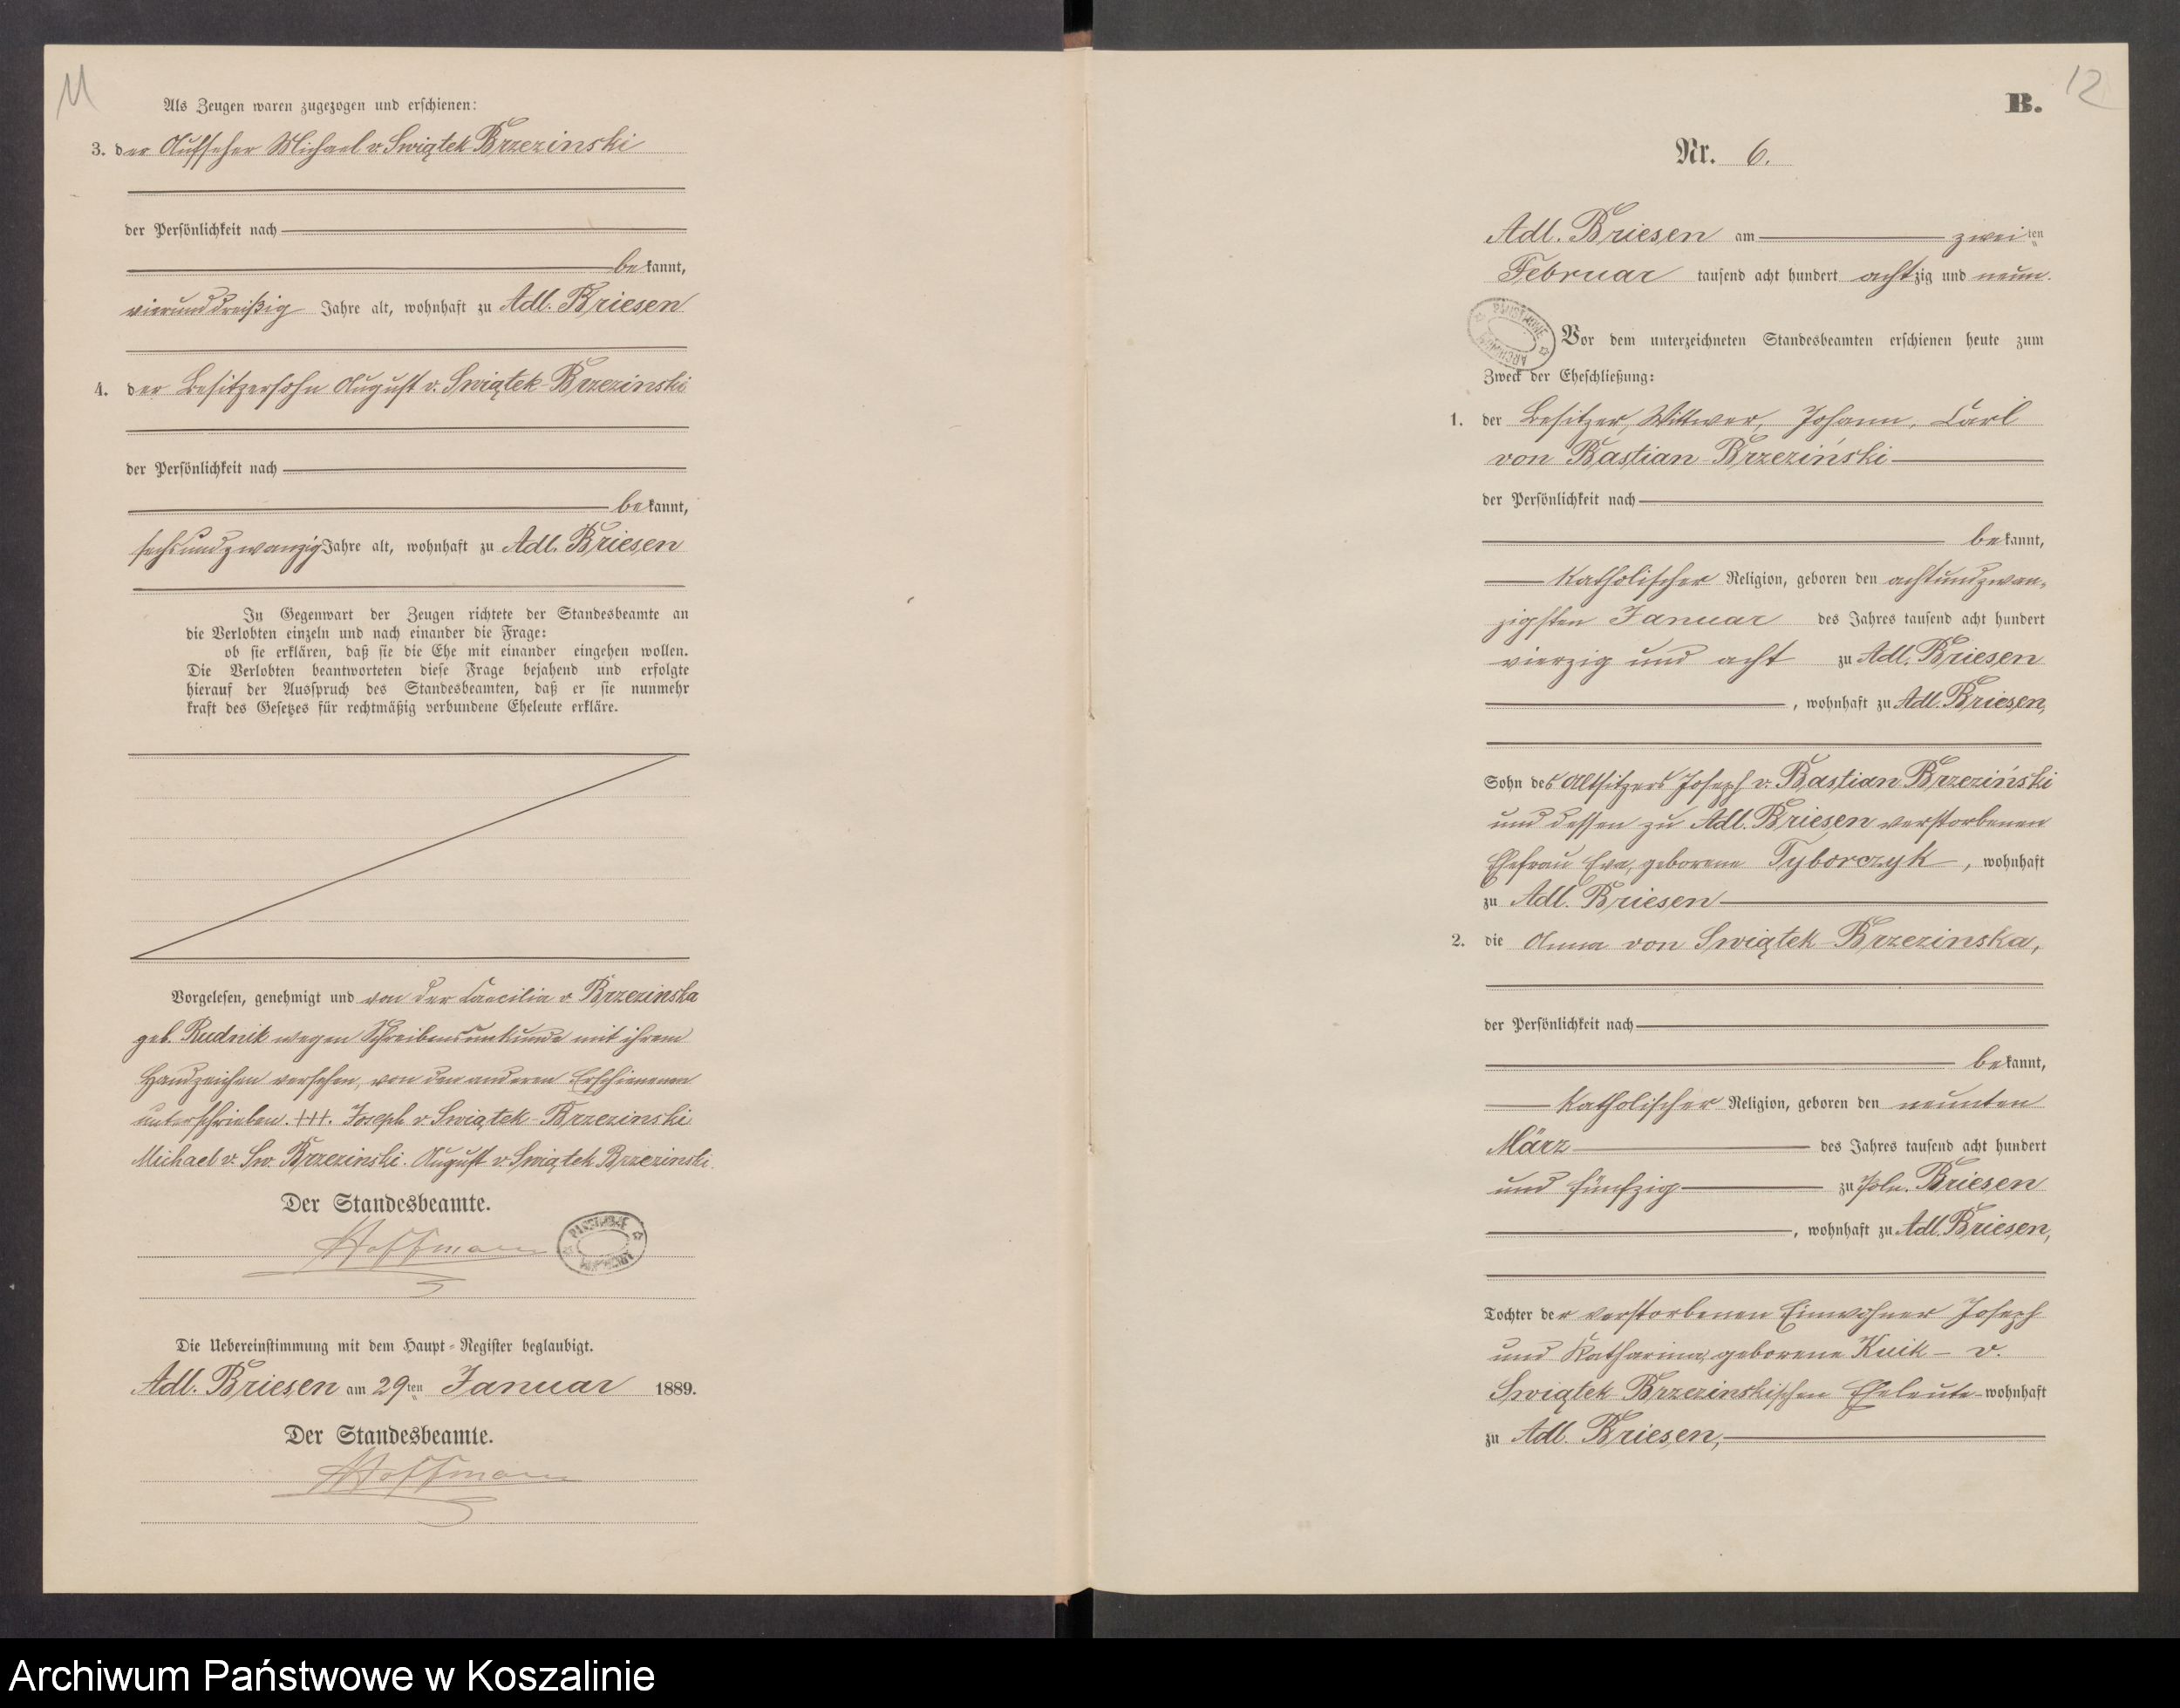 11
Als Zeugen waren zugezogen und erschienen:
3. der Aufseher Michael v. Swiątek Brzezinski
der Persönlichkeit nach
bekannt,
vierunddreißig Jahre alt, wohnhaft zu Adl. Briesen
4. der Besitzersohn August v. Swiątek-Brzezinski
der Persönlichkeit nach
bekannt,
sechsundzwanzig Jahre alt, wohnhaft zu Adl. Briesen
In Gegenwart der Zeugen richtete der Standesbeamte an
die Verlobten einzeln und nach einander die Frage:
ob sie erklären, daß sie die Ehe mit einander eingehen wollen.
Die Verlobten beantworteten diese Frage bejahend und erfolgte
hierauf der Ausspruch des Standesbeamten, daß er sie nunmehr
kraft des Gesetzes für rechtmäßig verbundene Eheleute erkläre.
Vorgelesen, genehmigt und von der Caecilia v Brzezinska
geb. Rudnik wegen Schreibensunkunde mit ihrem
Handzeichen versehen, von den anderen Erschienenen
unterschrieben. +++. Joseph v Swiątek-Brzezinski
Michael v. Sw. Brzezinski. August v. Swiątek Brzezinski.
Der Standesbeamte.
Hoffmann
PAŃSTWOWE ARCHIWUM
Die Uebereinstimmung mit dem Haupt-Register beglaubigt.
Adl. Briesen am 29ten Januar 1889.
Der Standesbeamte.
Hoffmann
12
B.
Nr. 6.
Adl. Briesen am zweiten
Februar tausend acht hundert achtzig und neun.
PAŃSTWOWE ARCHIWUM
Vor dem unterzeichneten Standesbeamten erschienen heute zum
Zweck der Eheschließung:
1. der Besitzer, Wittwer, Johann, Carl
von Bastian-Brzeziński
der Persönlichkeit nach
bekannt,
katholischer Religion, geboren den achtundzwan-
zigsten Januar des Jahres tausend acht hundert
vierzig und acht zu Adl. Briesen
, wohnhaft zu Adl. Briesen,
Sohn des Altsitzers Joseph v. Bastian Brzeziński
und dessen zu Adl. Briesen verstorbenen
Ehefrau Eva, geborene Tyborczyk, wohnhaft
zu Adl. Briesen
2. die Anna von Swiątek-Brzezinska,
der Persönlichkeit nach
bekannt,
katholischer Religion, geboren den neunten
März des Jahres tausend acht hundert
und fünfzig zu Poln. Briesen
, wohnhaft zu Adl. Briesen,
Tochter der verstorbenen Einwohner Joseph
und Katharina, geborene Kuik- v.
Swiątek Brzezinskischen Eheleute-wohnhaft
zu Adl. Briesen,
Archiwum Państwowe w Koszalinie